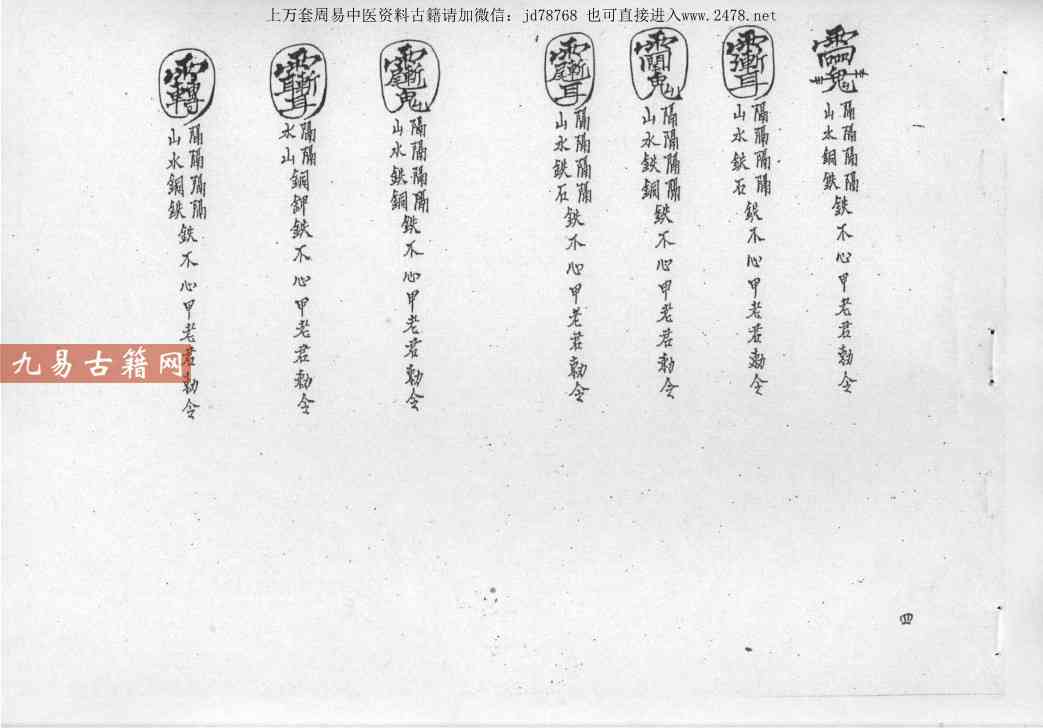 上万套周易中医资料古籍请加微信：jd78768 也可直接进入www.2478.net
隔山隔水隔銅隔鉄鉄不心甲老君勅令
隔山隔水隔鉄隔石鉄不心甲老君勅令
隔山隔水隔鉄隔銅鉄不心甲老君勅令
隔山隔水隔鉄隔石鉄不心甲老君勅令
隔山隔水隔鉄隔銅鉄不心甲老君勅令
隔水隔山銅鉄不心甲老君勅令
隔山隔水隔銅隔鉄鉄不心甲老君勅令
九易古籍网
四